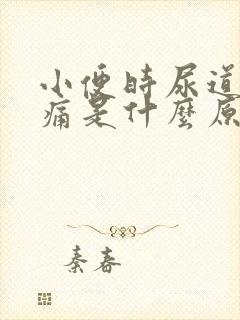 小便时尿道
痛是什麼原
秦春